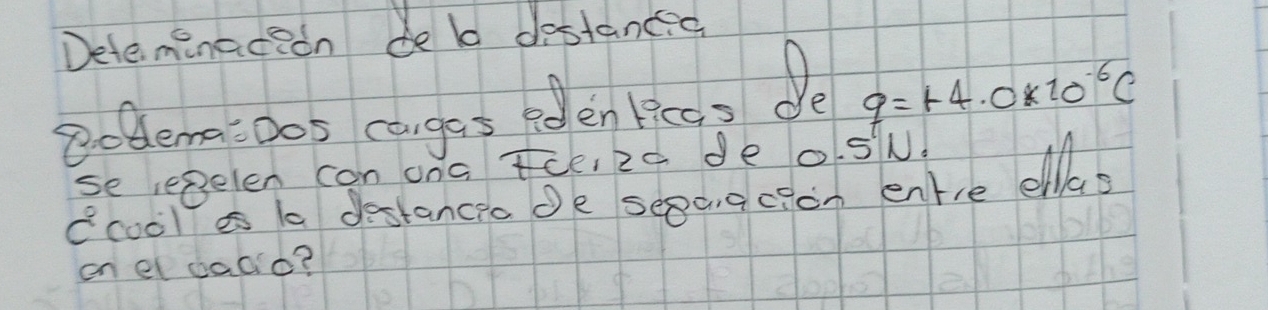 Determinación de la distancia
Problema: Dos cargas idénticas de q=+4.0x10⁻⁶C
se repelen con una Fuerza de 0.5 N.
¿cuál es la distancia de separación entre ellas
en el vacio?